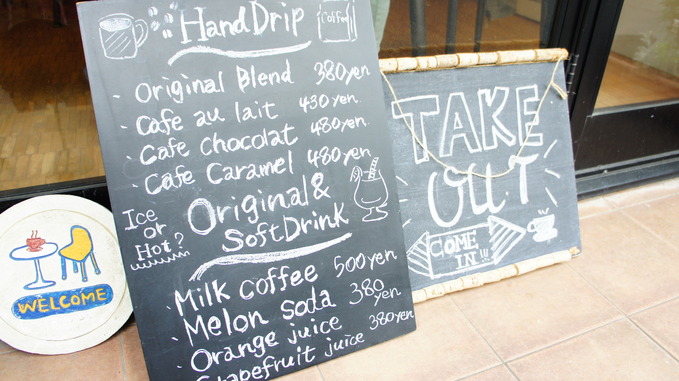 Hand Drip
Coffee
Original Blend 380yen
Cafe au lait 430yen
Cafe Chocolat 480yen.
Cafe Caramel 480yen.
Original &
Soft Drink
Ice
or
Hot?
Milk coffee 500yen
Melon soda 380yen
Orange juice 380yen
Grapefruit juice
TAKE
OUT
COME
IN!!!
WELCOME